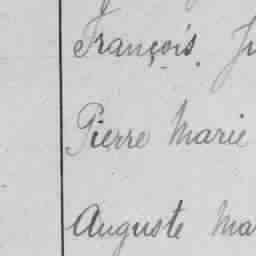 François
Pierre Marie
Auguste